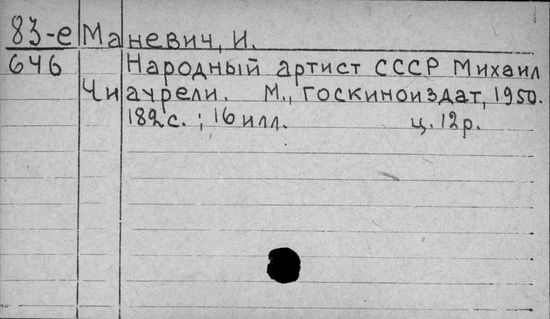 83-е Маневич, И.
646 Народный артист СССР Михаил
Чиаурели. М., Госкиноиздат, 1950.
182 с.; 16 илл. ц. 12 р.